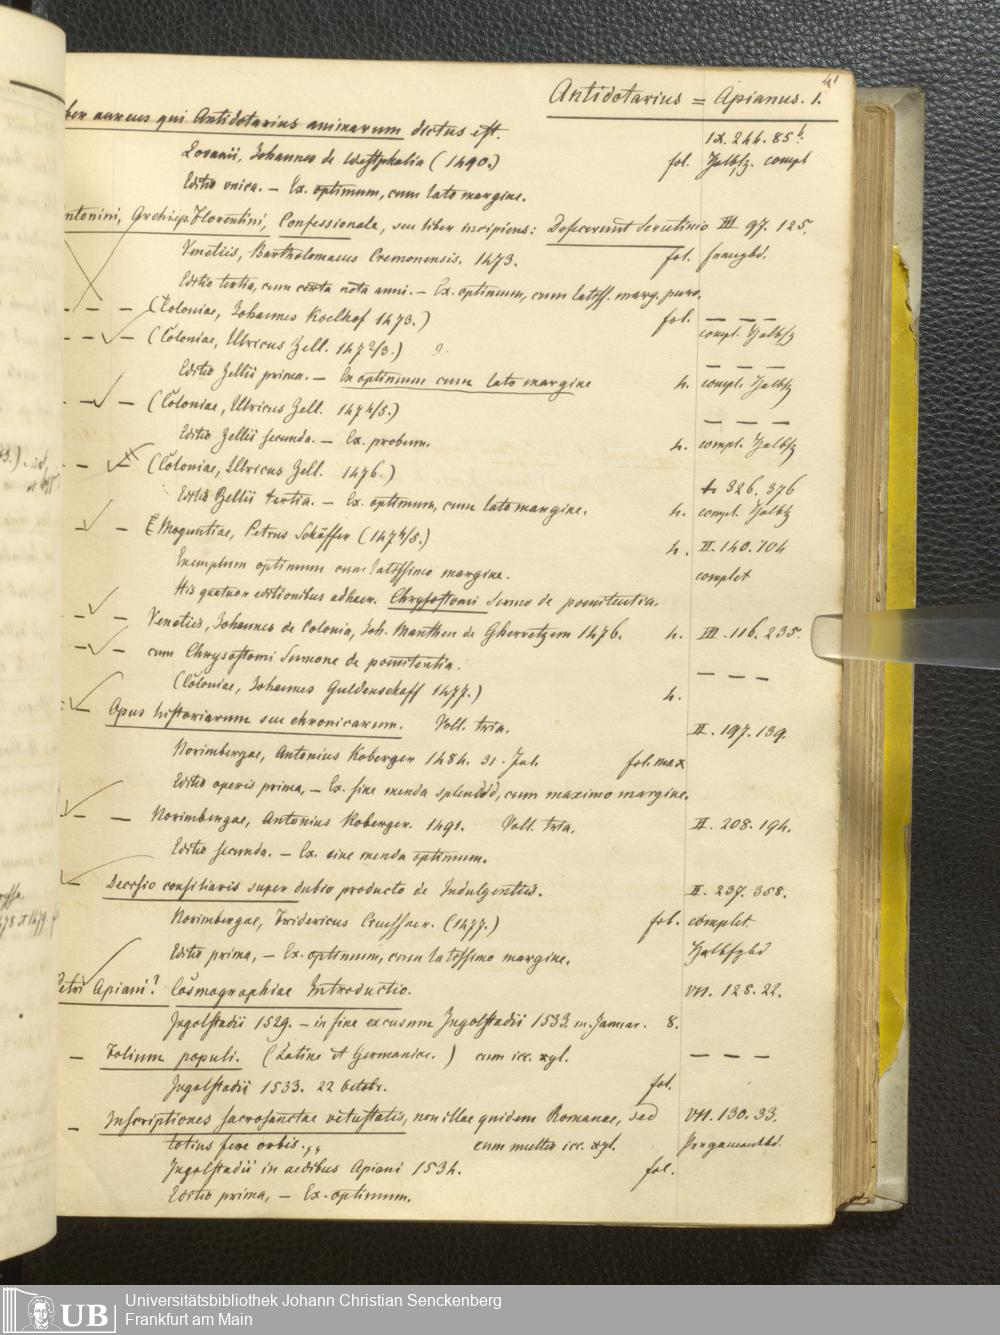 41
Antidotarius = Apianus. 1.
ber aureus qui Antidotarius animarum dictus est.
IX. 244. 85b.
Lovanii, Johannes de Westphalia (1490.) fol. Halbfz. compl
Editio unica. — Ex. optimum, cum lato margine.
ntonini, Archiep. Florentini, Confessionale, seu liber incipiens: Defecerunt Scrutinio III 97. 125.
Venetiis, Bartholomaeus Cremonensis. 1473. fol. franzbd.
Editio tertia, cum certa nota anni. — Ex. optimum, cum latiss. marg. puro.
— — (Coloniae, Johannes Koelhof 1473.) fol. — — —
— — (Coloniae, Ulricus Zell. 1472/3.) compl. Halbfz
Editio Zellii prima. — Ex optimum cum lato margine 4. — — — compl. Halbfz
— — (Coloniae, Ulricus Zell. 1474/5.) — — —
Editio Zellii secunda. — Ex. probum. 4. compl. Halbfz
— — (Coloniae, Ulricus Zell. 1476.)
326. 376
Editio Zellii tertia. — Ex. optimum, cum lato margine. 4. compl. Halbfz
— Moguntiae, Petrus Schöffer (1474/5.) 4. II. 140. 104
Exemplum optimum cum latissimo margine. complet
His quatuor editionibus adhaer. Chrysostomi Sermo de poenitentia.
— — Venetiis, Johannes de Colonia, Joh. Manthen de Gherretzem 1476. 4. III. 116. 235.
— — cum Chrysostomi Sermone de poenitentia.
(Coloniae, Johannes Guldenschaff 1477.) 4. — — —
— Opus historiarum seu chronicarum. Voll. tria. II. 197. 139.
Norimbergae, Antonius Koberger 1484. 31. Jul. fol. max
Editio operis prima, — Ex. sine menda splendid, cum maximo margine.
— — Norimbergae, Antonius Koberger. 1491. Voll. tria. II. 208. 194.
Editio secunda. — Ex. sine menda optimum.
— Decisio consiliaris super dubio producto de Indulgentiis. II. 237. 358.
Norimbergae, Fridericus Creussner. (1477.) fol. complet
Editio prima, — Ex. optimum, cum latissimo margine. Halbfzbd
etri Apiani? Cosmographiae Introductio. VII. 128. 22.
Ingolstadii 1529. — in fine excusum Ingolstadii 1533. m. Januar. 8.
— Folium populi. (Latine et Germanice.) cum icc. xyl. — — —
Ingolstadii 1533. 22 Octobr. fol.
— Inscriptiones sacrosanctae vetustatis, non illae quidem Romanae, sed VII. 130. 33.
totius fere orbis.,, cum multis icc. xyl. Pergamentbd.
Ingolstadii in aedibus Apiani 1534. fol.
Editio prima, — Ex. optimum.
UB
Universitätsbibliothek Johann Christian Senckenberg
Frankfurt am Main